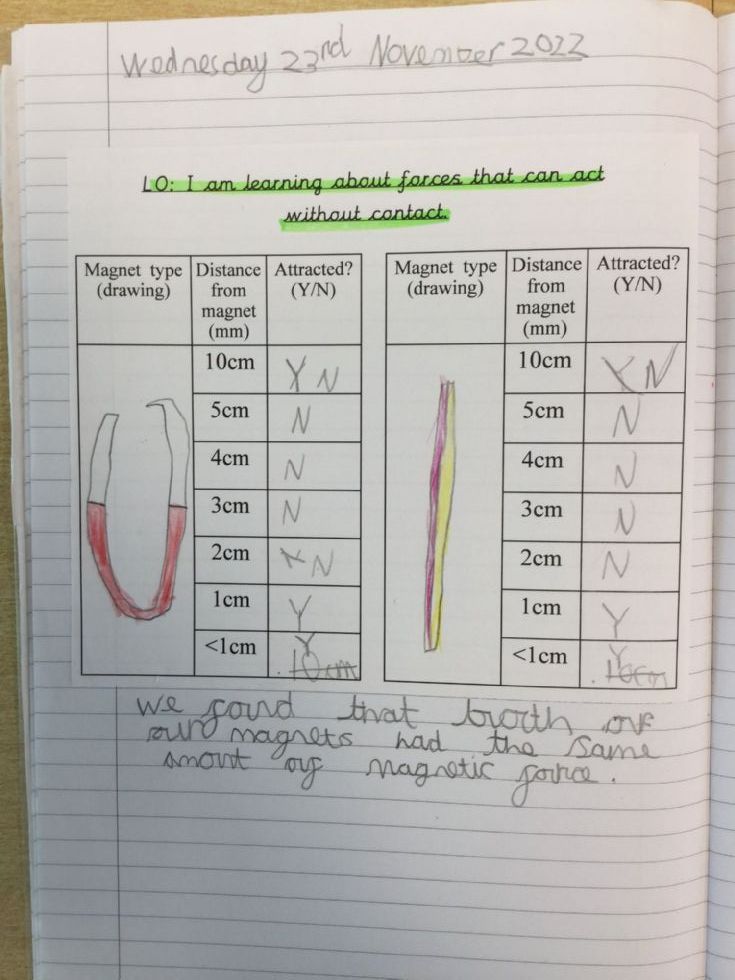 Wednesday 23rd November 2022
LO: I am learning about forces that can act
without contact.
Magnet type (drawing) Distance from magnet (mm) Attracted? (Y/N)
10cm Y N
5cm N
4cm N
3cm N
2cm N
1cm Y
<1cm Y
10cm
Magnet type (drawing) Distance from magnet (mm) Attracted? (Y/N)
10cm Y N
5cm N
4cm N
3cm N
2cm N
1cm Y
<1cm Y
10cm
We found that both of
our magnets had the same
amont of magnetic force.